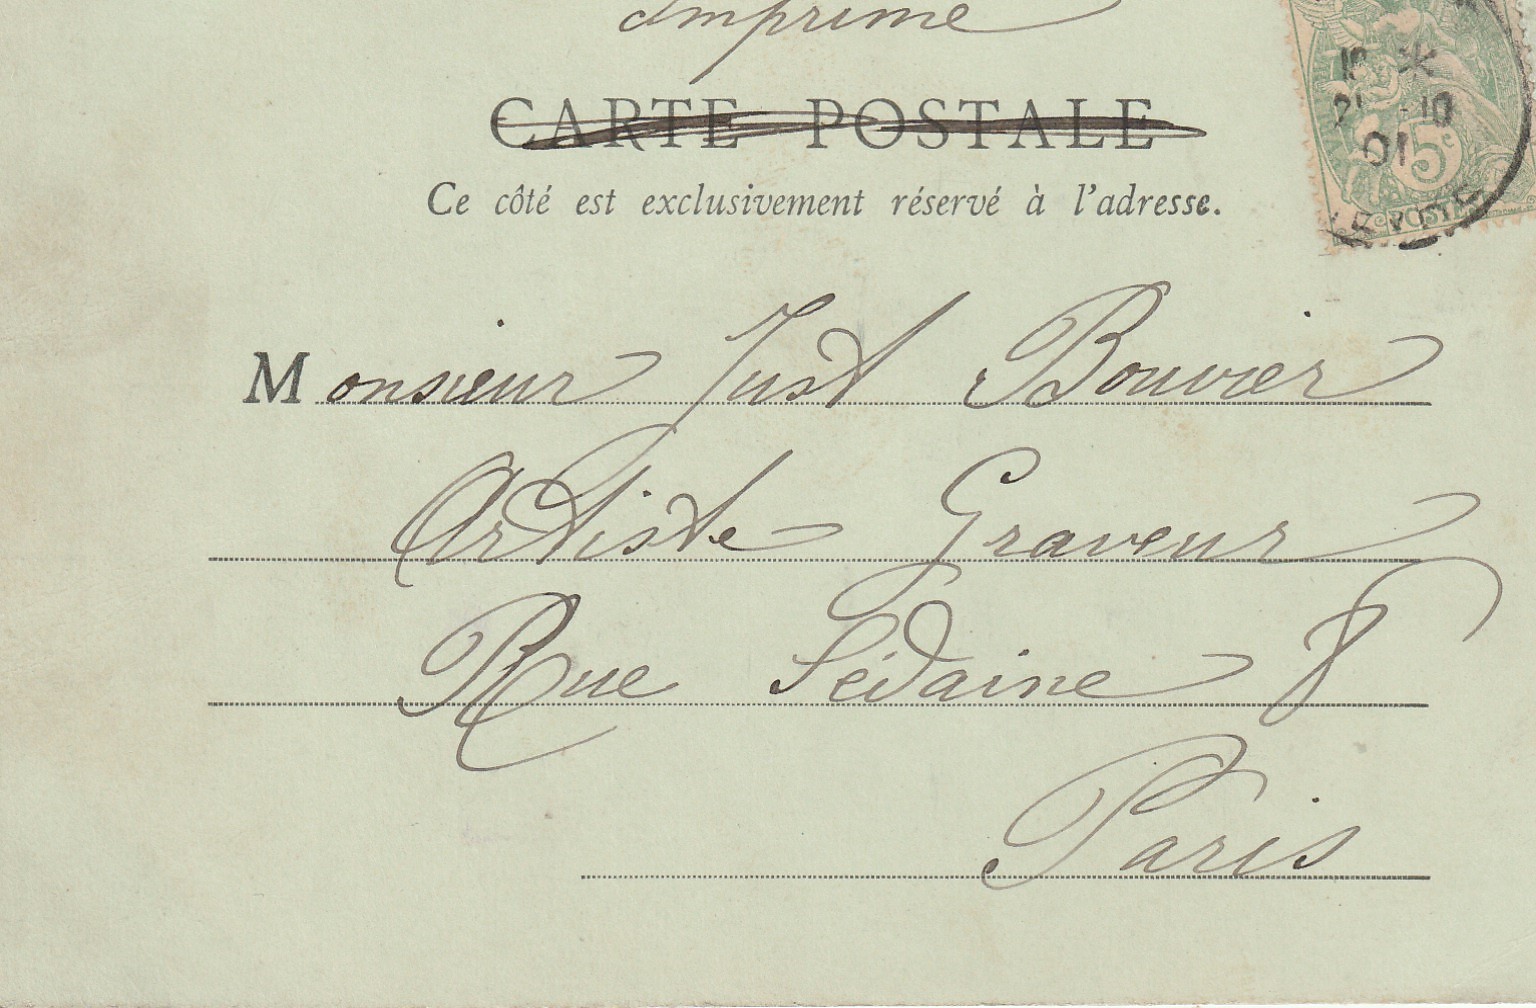 Imprimé
CARTE POSTALE
Ce côté est exclusivement réservé à l'adresse.
Monsieur Just Bouvier
Artiste Graveur
Rue Sédaine 8
Paris
21 -10
01
5c
POSTE